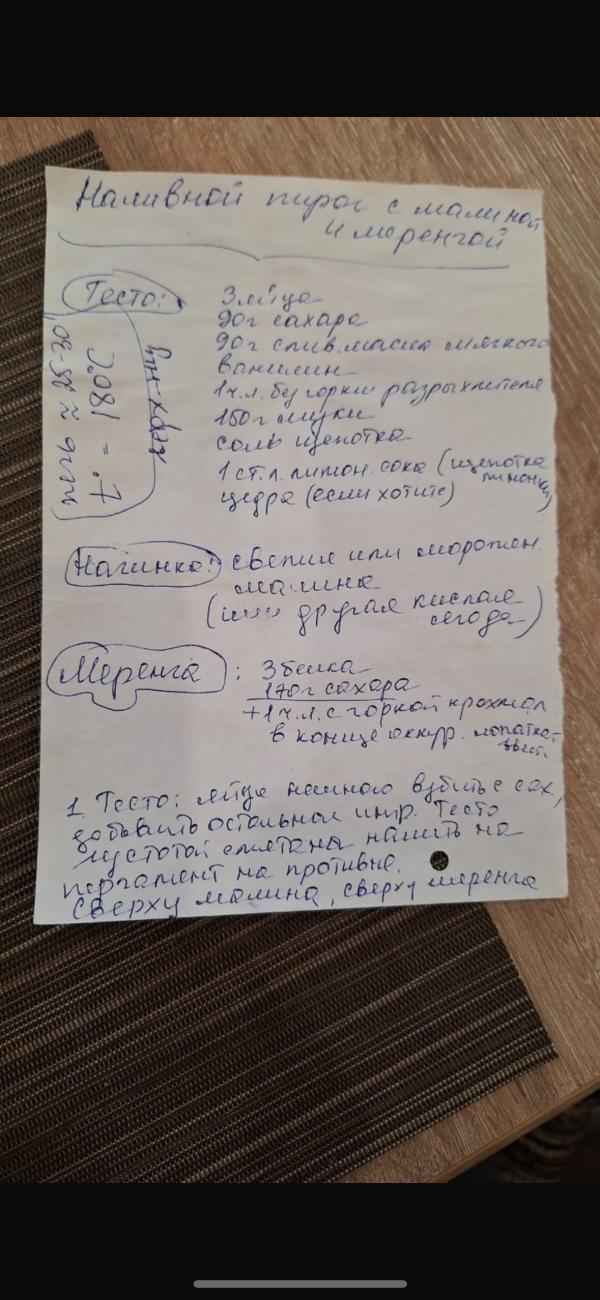 Наливной пирог с малиной
и меренгой
Тесто:
3 яйца
90г сахара
90г слив. масла мягкого
ванилин
1 ч.л. б/горки разрыхлителя
150г муки
соль щепотка
1 ст.л. лимон. сока (щепотка
лимонки)
цедра (если хотите)
верх-низ
t. = 180°C
печь ≈ 25-30
Начинка: свежие илиморожен.
малина
(или другая кислая
ягода)
Меренга: 3 белка
170г сахара
+ 1 ч.л. с горкой крахмал
в конце аккур. лопаткой
1. Тесто: яйца немного взбить с сах,
добавить остальные ингр. Тесто
густотой сметаны налить на
пергамент на противне.
сверху малина, сверху меренга